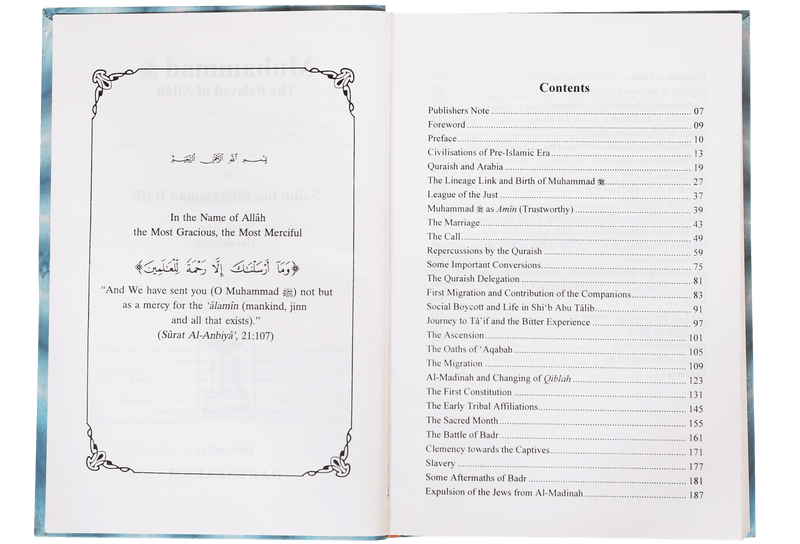 بِسْمِ اللَّهِ الرَّحْمَٰنِ الرَّحِيمِ
In the Name of Allâh
the Most Gracious, the Most Merciful
﴿وَمَا أَرْسَلْنَاكَ إِلَّا رَحْمَةً لِّلْعَالَمِينَ﴾
“And We have sent you (O Muhammad ﷺ) not but
as a mercy for the ‘âlamîn (mankind, jinn
and all that exists).”
(Sûrat Al-Anbiyâ’, 21:107)
Contents
Publishers Note ........ 07
Foreword ........ 09
Preface ........ 10
Civilisations of Pre-Islamic Era ........ 13
Quraish and Arabia ........ 19
The Lineage Link and Birth of Muhammad ﷺ ........ 27
League of the Just ........ 37
Muhammad ﷺ as Amîn (Trustworthy) ........ 39
The Marriage ........ 43
The Call ........ 49
Repercussions by the Quraish ........ 59
Some Important Conversions ........ 75
The Quraish Delegation ........ 81
First Migration and Contribution of the Companions ........ 83
Social Boycott and Life in Shi‘b Abu Tâlib ........ 91
Journey to Tâ’if and the Bitter Experience ........ 97
The Ascension ........ 101
The Oaths of ‘Aqabah ........ 105
The Migration ........ 109
Al-Madinah and Changing of Qiblah ........ 123
The First Constitution ........ 131
The Early Tribal Affiliations ........ 145
The Sacred Month ........ 155
The Battle of Badr ........ 161
Clemency towards the Captives ........ 171
Slavery ........ 177
Some Aftermaths of Badr ........ 181
Expulsion of the Jews from Al-Madinah ........ 187